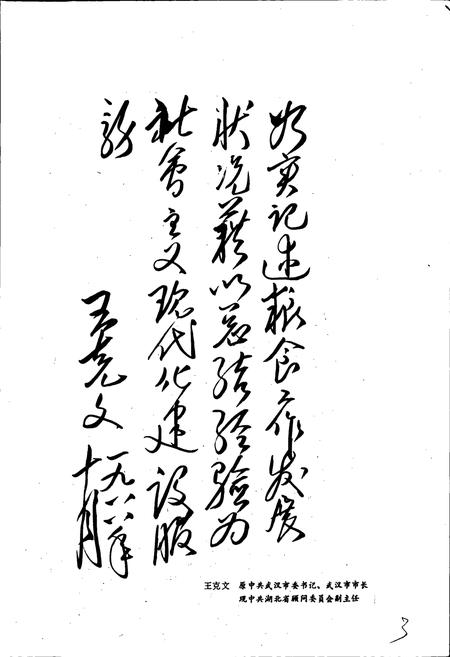 如实记述粮食工作发展
状况藉以总结经验为
社会主义现代化建设服
务
王克文
一九八六年
十月
王克文 原中共武汉市委书记、武汉市市长
现中共湖北省顾问委员会副主任
3